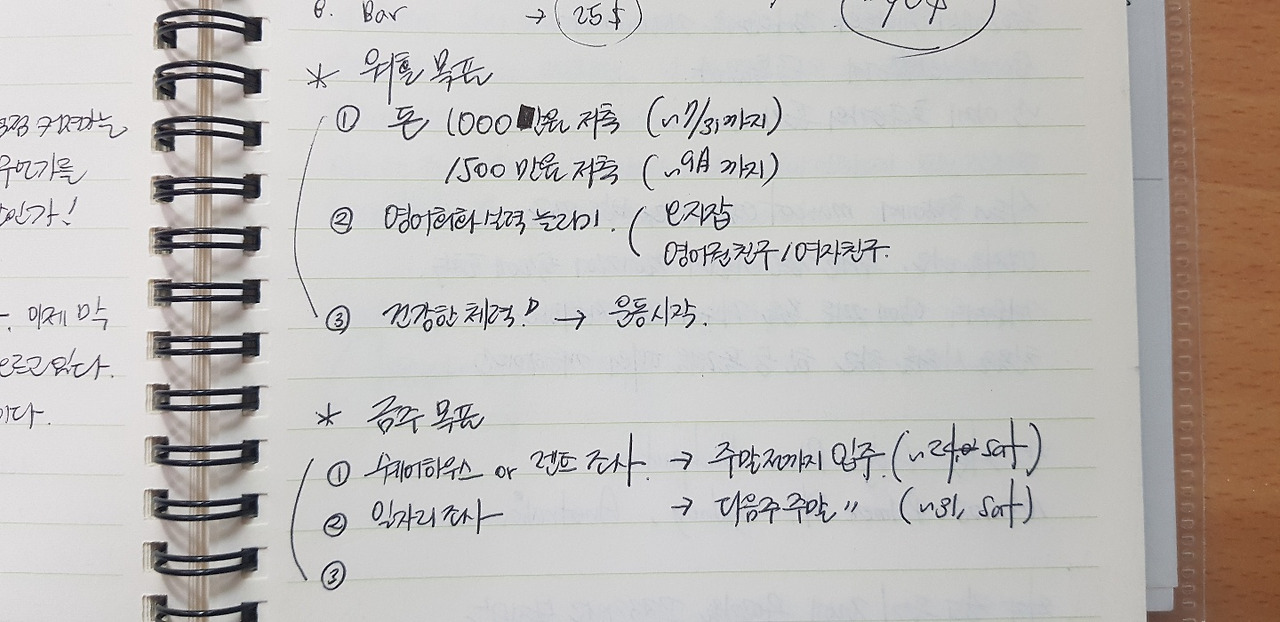 6. Bar → 25$
* 워홀 목표
① 돈 1000만원 저축 (~7/31까지)
1500만원 저축 (~9月까지)
② 영어회화실력 늘리기. ( 오지잡
영어권친구/여자친구.
③ 건강한 체력! → 운동시작.
* 금주 목표
① 쉐어하우스 or 렌트 조사. → 주말전까지 입주. (~24, sat)
② 일자리 조사 → 다음주 주말 〃 (~31, sat)
③
우먼가를
인가!
. 이제 막
오르고 있다.
이다.